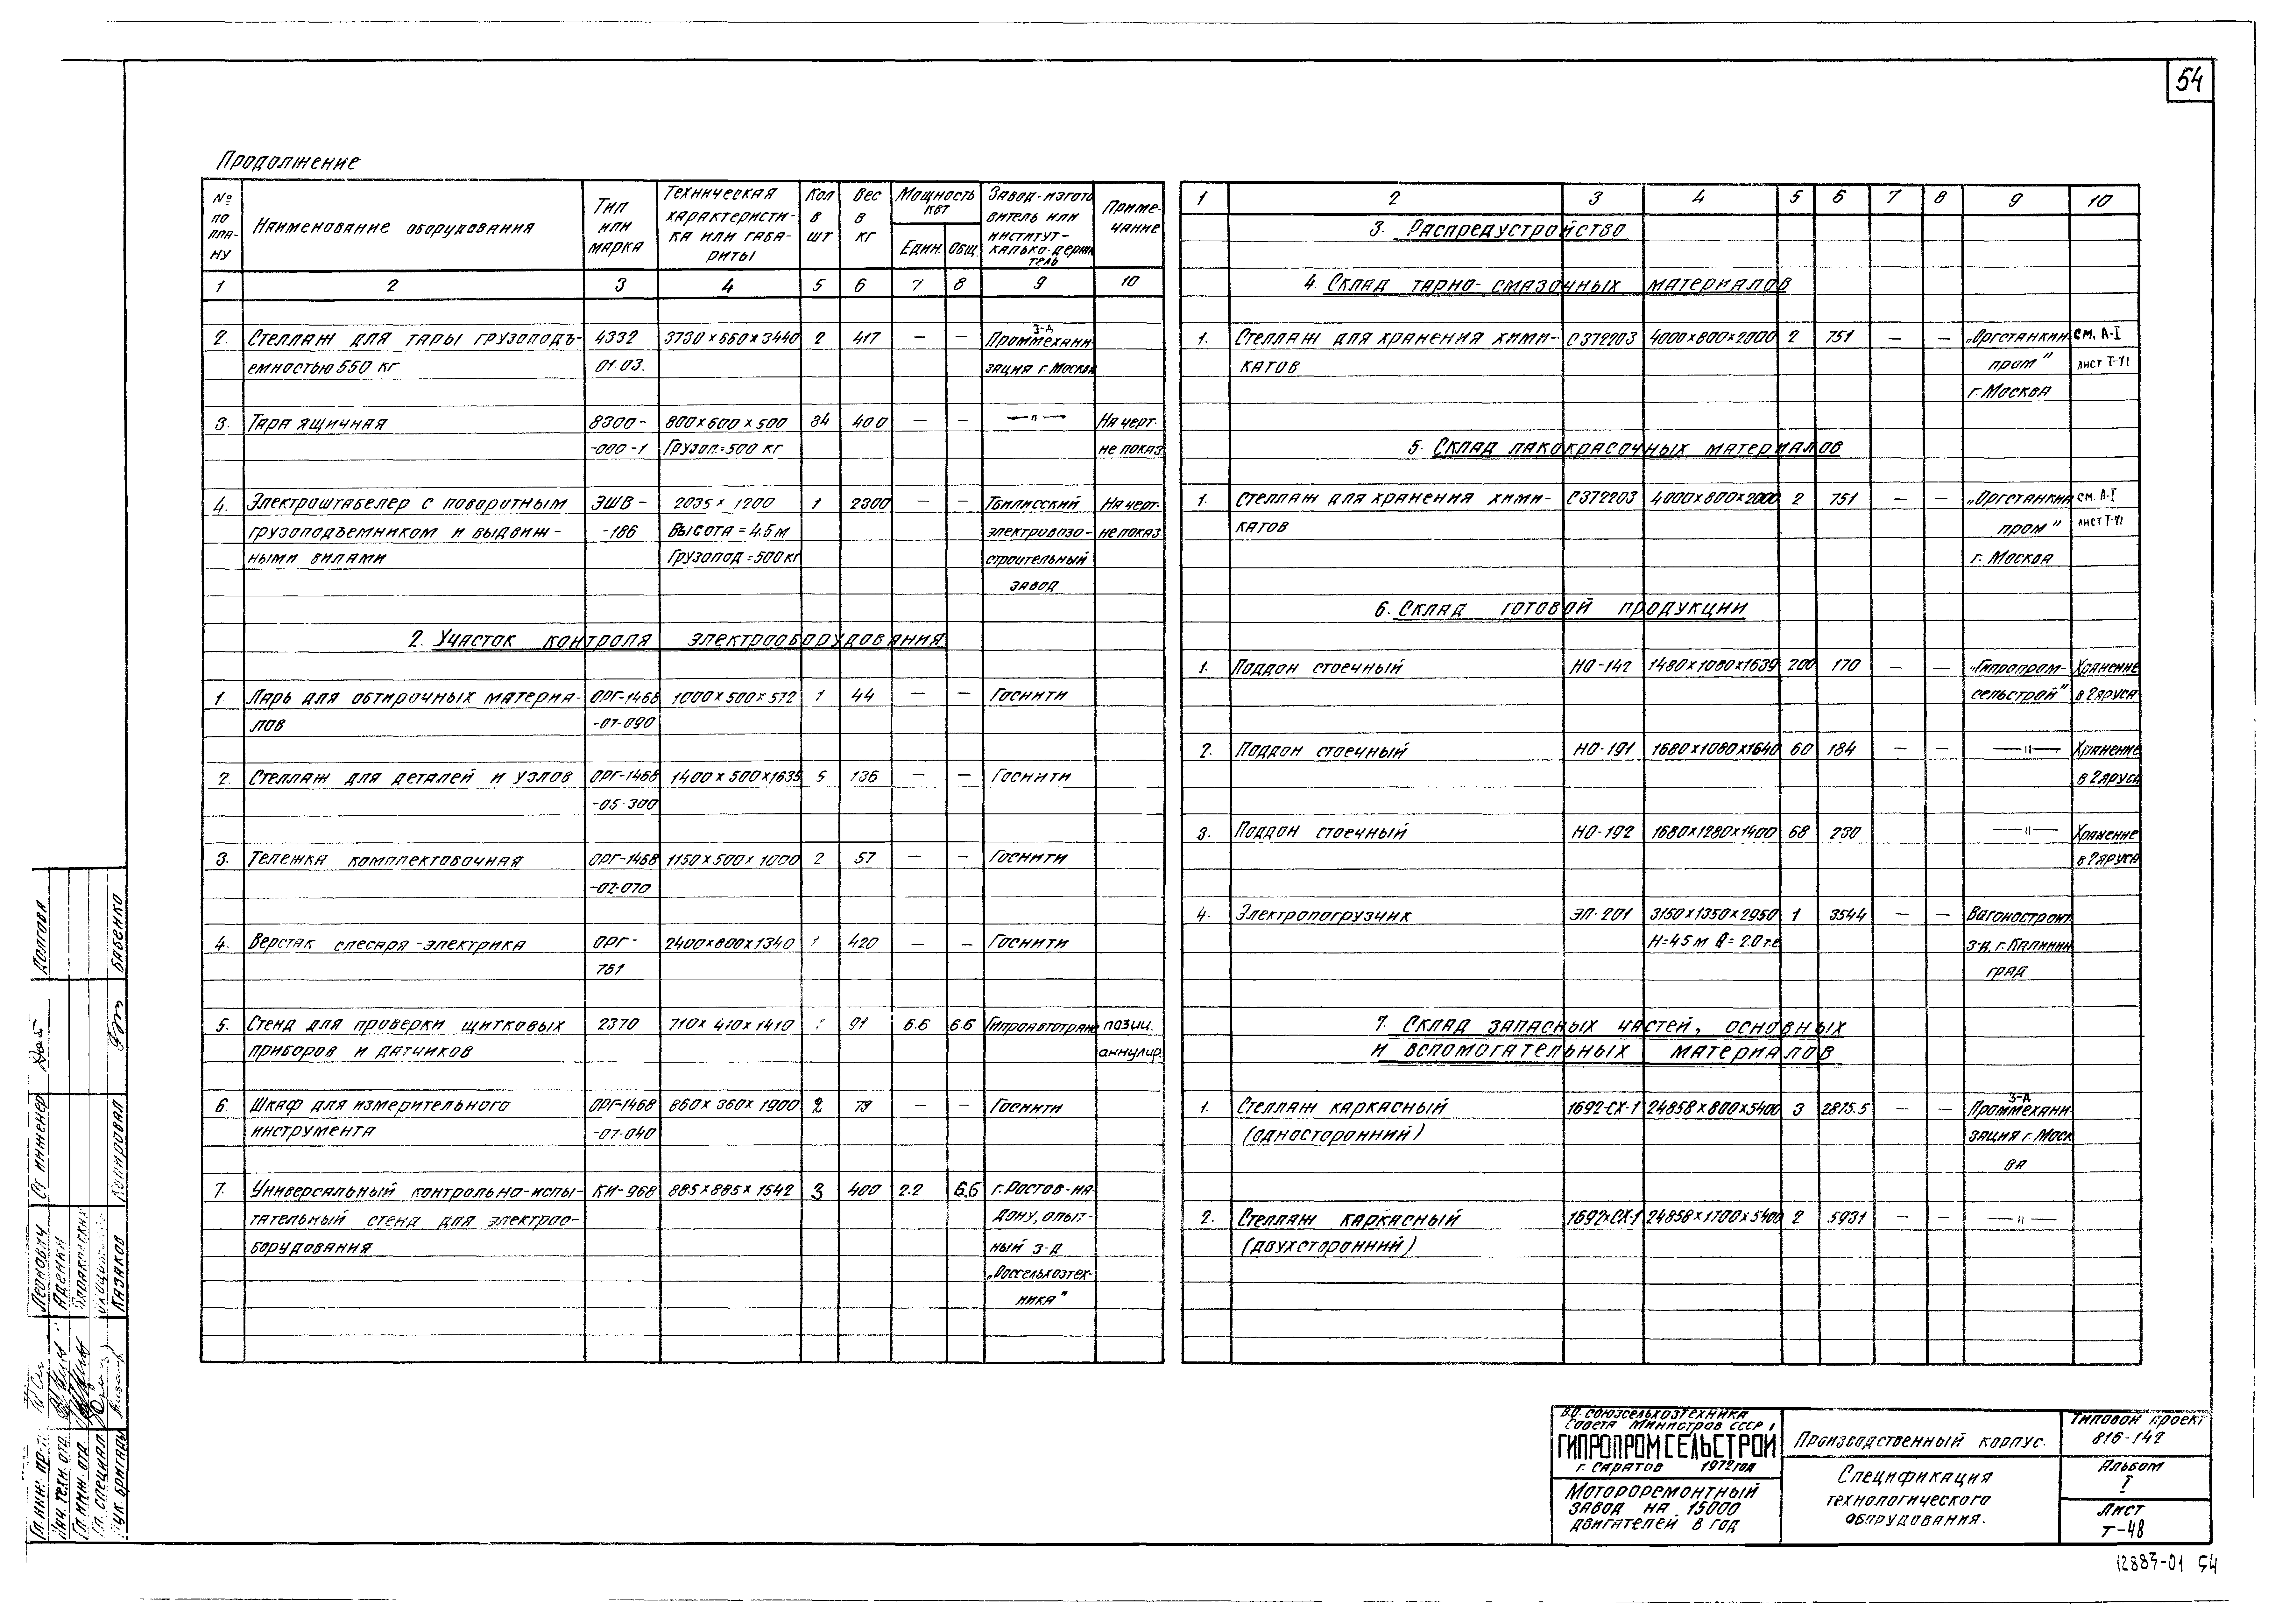 54
Продолжение
№ по плану | Наименование оборудования | Тип или марка | Техническая характеристика или габариты | Кол в шт | Вес в кг | Мощность квт Един. Общ. | Завод-изготовитель или институт-калько-держатель | Примечание
1 2 3 4 5 6 7 8 9 10
2. Стеллаж для тары грузоподъ- 4332 3730×660×3440 2 417 — — з-д Проммехани-
емностью 550 кг 01.03. зация г. Москва
3. Тара ящичная 8300- 800×600×500 84 400 — — —"— На черт.
-000-1 Грузоп.=500 кг не показ.
4. Электроштабелер с поворотным ЭШВ- 2035×1200 1 2300 — — Тбилисский На черт.
грузоподъемником и выдвиж- -186 Высота=4.5м электровозо- не показ.
ными вилами Грузопод=500кг строительный
завод
2. Участок контроля электрооборудования
1. Ларь для обтирочных материа- ОРГ-1468 1000×500×572 1 44 — — Госнити
лов -07-090
2. Стеллаж для деталей и узлов ОРГ-1468 1400×500×1635 5 136 — — Госнити
-05-300
3. Тележка комплектовочная ОРГ-1468 1150×500×1000 2 57 — — Госнити
-02-070
4. Верстак слесаря-электрика ОРГ- 2400×800×1340 1 420 — — Госнити
761
5. Стенд для проверки щитковых 2370 710×410×1410 1 91 6.6 6.6 Гипроавтотранс позиц.
приборов и датчиков аннулир.
6. Шкаф для измерительного ОРГ-1468 860×360×1900 2 79 — — Госнити
инструмента -07-040
7. Универсальный контрольно-испы- КИ-968 885×885×1542 3 400 2.2 6.6 г. Ростов-на-
тательный стенд для электроо- Дону, опыт-
борудования ный з-д
„Россельхозтех-
ника"
1 2 3 4 5 6 7 8 9 10
3. Распредустройство
4. Склад тарно-смазочных материалов
1. Стеллаж для хранения хими- С372203 4000×800×2000 2 751 — — „Оргстанкин- см. А-I
катов пром" лист Т-71
г. Москва
5. Склад лакокрасочных материалов
1. Стеллаж для хранения хими- С372203 4000×800×2000 2 751 — — „Оргстанкин см. А-I
катов пром" лист Т-71
г. Москва
6. Склад готовой продукции
1. Поддон стоечный НО-142 1480×1080×1639 200 170 — — „Гипропром- Хранение
сельстрой" в 2 яруса
2. Поддон стоечный НО-191 1680×1080×1640 60 184 — — —"— Хранение
в 2 яруса
3. Поддон стоечный НО-192 1680×1280×1400 68 230 —"— Хранение
в 2 яруса
4. Электропогрузчик ЭП-201 3150×1350×2950 1 3544 — — Вагоностроит.
Н=45м Q=2.0тс з-д, г. Калинин
град
7. Склад запасных частей, основных
и вспомогательных материалов
1. Стеллаж каркасный 1692-СХ-1 24858×800×5400 3 2875.5 — — з-д Проммехани-
(односторонний) зация г. Моск
ва
2. Стеллаж каркасный 1692×СХ-1 24858×1700×5400 2 5931 — — —"—
(двухсторонний)
В.О. Союзсельхозтехника
Совета Министров СССР
ГИПРОПРОМСЕЛЬСТРОЙ
г. Саратов 1972 год
Мотороремонтный
завод на 15000
двигателей в год
Производственный корпус.
Спецификация
технологического
оборудования.
Типовой проект
816-142
Альбом
I
Лист
Т-48
12883-01 54
Гл. инж. пр-та Леонович Ст инженер Долгова
Нач. техн. отд. Аденин
Гл. инж. отд.
Гл. специал.
Рук. бригады Казаков Копировал Бабенко